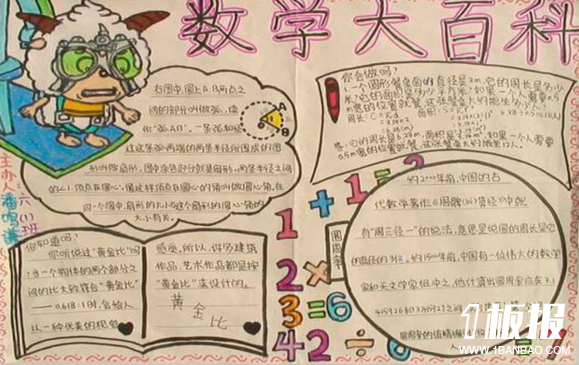 数学大百科
主办人:六(1)班
右图中,圆上A、B两点之
间的部分叫做弧,读
作"弧AB",一条弧和经
过这条弧两端的两条半径所围成的图
形叫做扇形。图中涂色部分就是扇形。两条半径之间
的∠1,顶点在圆心。像这样顶点在圆心的角叫做圆心角。在
同一个圆中,扇形的大小与这个扇形的圆心角的
大小有关。
A
B
O
你会做吗?
1、一个圆形餐桌面的直径是2m,它的周长是多少
米?它的面积是多少平方米?如果一个人需要0.5
m宽的位置就餐,这张餐桌大约能坐多少人?
答:它的周长是6.28m,面积是3.14m²,如果一个人需要
0.5m宽的位置就餐,这张餐桌大约能坐12人。
1+1=2
2×
3=6
42÷6=
圆周率
约2000年前,中国的古
代数学著作《周髀算经》中就
有"周三径一"的说法,意思是说圆的周长是它
的直径的3倍。约1500年前,中国有一位伟大的数学
家和天文学家祖冲之。他计算出圆周率应在3.1
你知道吗?
你听说过"黄金比"吗?
当一个物体的两个部分之
间的比大致符合"黄金比"
——0.618:1时,会给人
以一种优美的视觉
感觉。所以,好多建筑
作品、艺术作品都是按
"黄金比"来设计的。
黄金比
1板报
WWW.1BANBAO.COM